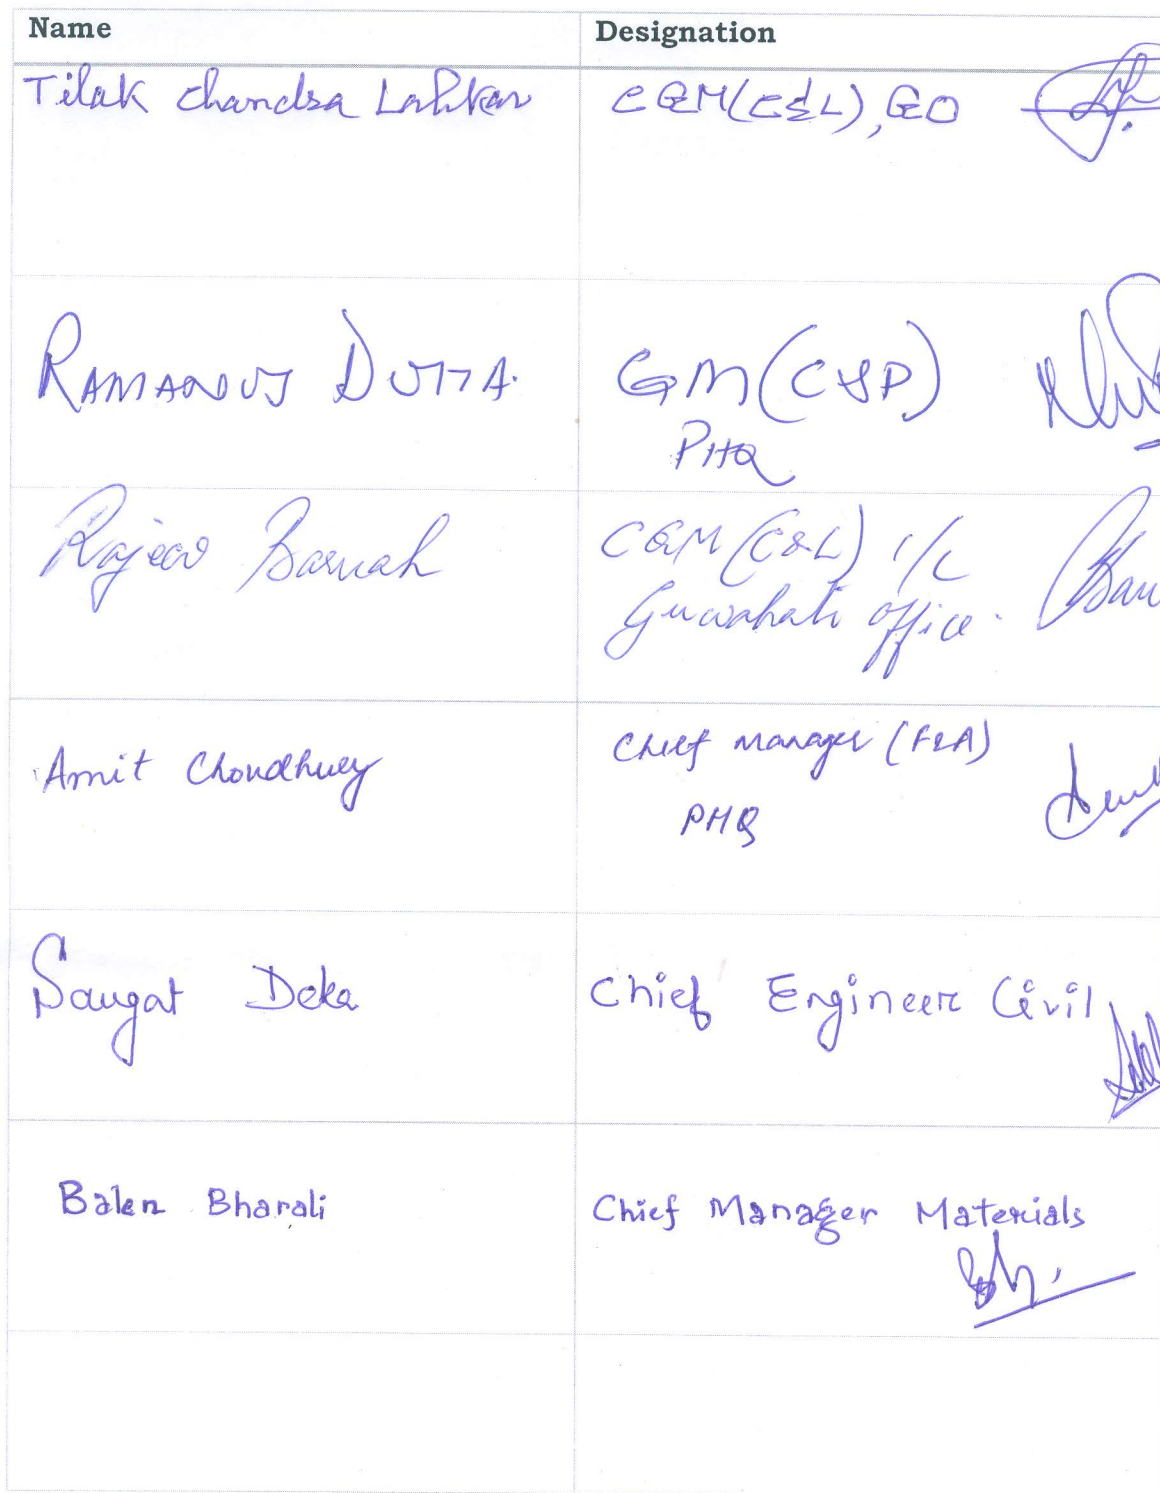 Name Designation
Tilak Chandra Lahkar CGM(C&L), GO
RAMANUJ DUTTA. GM(C&P)
PHQ
Rajeev Baruah CGM (C&L) i/c
Guwahati office.
Amit Choudhury Chief Manager (F&A)
PHQ
Saugat Deka Chief Engineer Civil
Balen Bharali Chief Manager Materials